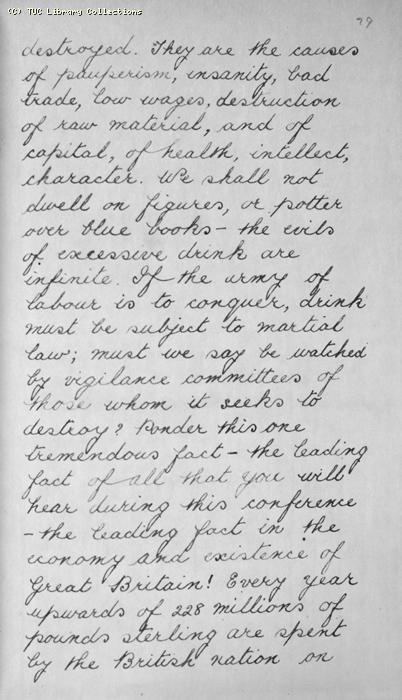 (C) TUC Library Collections
79
destroyed. They are the causes
of pauperism, insanity, bad
trade, low wages, destruction
of raw material, and of
capital, of health, intellect,
character. We shall not
dwell on figures, or potter
over blue books - the evils
of excessive drink are
infinite. If the army of
labour is to conquer, drink
must be subject to martial
law; must we say be watched
by vigilance committees of
those whom it seeks to
destroy? Ponder this one
tremendous fact - the leading
fact of all that you will
hear during this conference
- the leading fact in the
economy and existence of
Great Britain! Every year
upwards of 228 millions of
pounds sterling are spent
by the British nation on